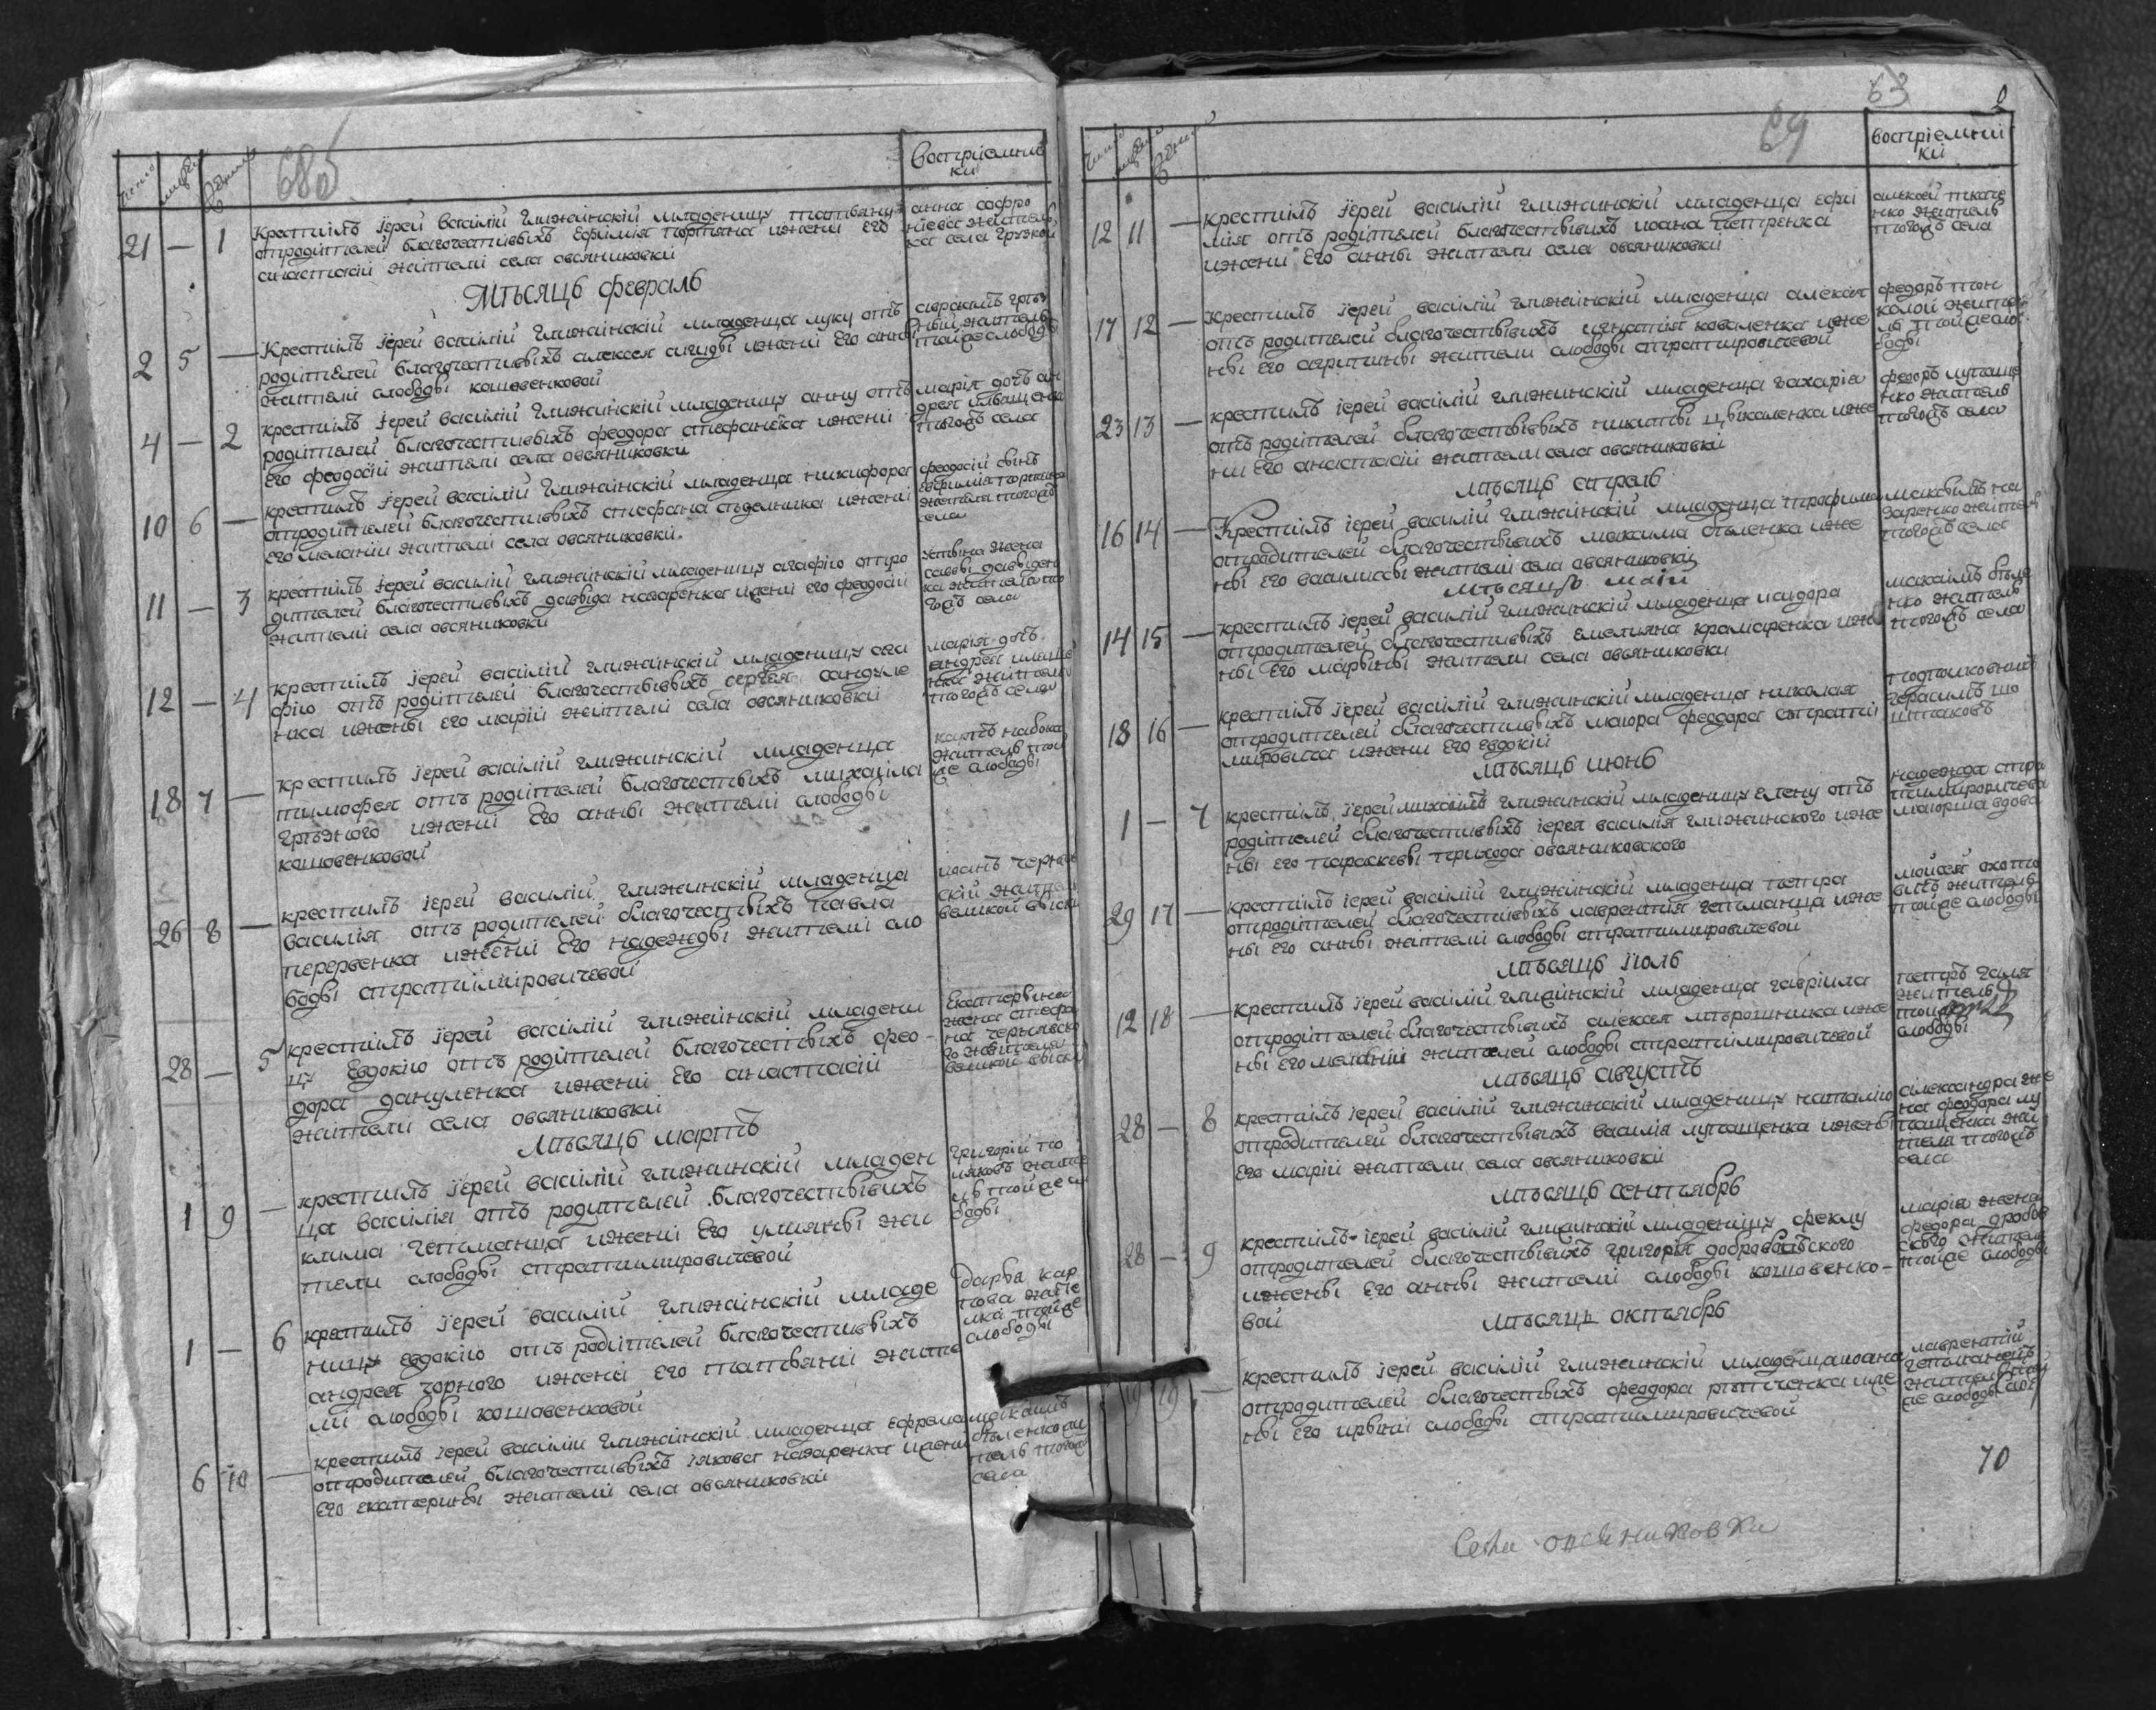 68об
число
женска
восприемни
ки
21 — 1
Крестилъ іерей василій глижинскій младеницу татіяну
отродителей благочестивыхъ ефимия портяна ижени его
анастасіи жители села овсяниковки
анна софро
ніева жител
ка села грузкой
Мѣсяцъ февраль
2 5 —
Крестилъ іерей василій глижинскій младенца луку отъ
родителей благочестивыхъ алексея ижени его анны
жители слободы кошовенковой
аврамъ гряз
ный житель
тойже слободы
4 — 2
крестилъ іерей василій глижинскій младеницу анну отъ
родителей благочестивыхъ феодора стефаненка ижени
его феодосіи жители села овсяниковки
марія дочъ ан
дрея
тогожъ села
10 6 —
крестилъ іерей василій глижинскій младенца никифора
отродителей благочестивыхъ стефана ижени
его меланіи жители села овсяниковки.
феодосій синъ
ефимия портяна
жители тогожъ
села
11 — 3
крестилъ іерей василій глижинскій младеницу агафію отро
дителей благочестивыхъ давыда назаренка ижени его феодосіи
жители села овсяниковки
жена
савы давиден
ка жителя то
гожъ села
12 — 4
крестилъ іерей василій глижинскій младеницу ага
фію отъ родителей благочестивыхъ сергея сандуле
нка ижены его маріи жители села овсяниковки
марія дочъ
андрея
жителя
тогожъ села
18 7 —
крестилъ іерей василій глижинскій младенца
тимофея отъ родителей благочестивыхъ михаила
грязного ижени его анны жители слободы
кошовенковой
карпъ набока
житель той
же слободы
26 8 —
крестилъ іерей василій глижинскій младенца
василія отъ родителей благочестивыхъ павла
перервенка ижени его надежды жители сло
боды стратимировичевой
иоанъ черняв
скій жител
великой
28 — 5
крестилъ іерей василій глижинскій младени
цу евдокію отъ родителей благочестивыхъ фео-
дора дануленка ижени его анастасіи
жители села овсяниковки
екатерина
жена стефа
на чернявско
го жителя
великой
Мѣсяцъ мартъ
1 9 —
крестилъ іерей василій глижинскій младен
ца василія отъ родителей благочестивыхъ
клима гетманца ижени его улияны жи
тели слободы стратимировичевой
григорій по
ляковъ жите
ль тойже сло
боды
1 — 6
крестилъ іерей василій глижинскій младе
ницу евдокію отъ родителей благочестивыхъ
андрея чорного ижени его татіяни жите
ли слободы кошовенковой
дарія кар
пова жите
лка тойже
слободы
6 10 —
крестилъ іерей василій глижинскій младенца ефрема
отродителей благочестивыхъ іякова назаренка ижени
его екатерины жители села овсяниковки
максимъ
бѣленко жи
тель тогож
села
63
69
2
число
восприемни
ки
12 11 —
крестилъ іерей василій глижинскій младенца ефи
мія отъ родителей благочестивыхъ иоана петренка
ижени его анны жители села овсяниковки
алексей ткаче
нко житель
тогожъ села
17 12 —
крестилъ іерей василій глижинскій младенца алексея
отъ родителей благочестивыхъ игнатія коваленка иже
ны его агрипины жители слободы стратимировичевой
федоръ тон
колой жите
ль тойже сло
боды
23 13 —
крестилъ іерей василій глижинскій младенца захарія
отъ родителей благочестивыхъ никиты цвикаленка иже
ни его анастасіи жители села овсяниковки
федоръ лупаще
нко житель
тогожъ села
мѣсяцъ апрель
16 14 —
Крестилъ іерей василій глижинскій младенца трофима
отродителей благочестивыхъ максима бѣленка иже
ны его василисы жители села овсяниковки
максимъ на
заренко жител
тогожъ села
мѣсяцъ маій
14 15 —
крестилъ іерей василій глижинскій младенца исидора
отродителей благочестивыхъ емельяна крамаренка иже
ны его марины жители села овсяниковки
максимъ бѣле
нко житель
тогожъ села
18 16 —
крестилъ іерей василій глижинскій младенца николая
отродителей благочестивыхъ маиора феодора страти
мировича ижени его евдокіи
подполковникъ
герасимъ шо
штаковъ
мѣсяцъ июнь
1 — 7
крестилъ іерей михаилъ глижинскій младеницу елену отъ
родителей благочестивыхъ іерея василія глижинского иже
ны его параскевы прихода овсяниковского
надежда стра
тимировичева
маиорша вдова
29 17 —
крестилъ іерей василій глижинскій младенца петра
отродителей благочестивыхъ лаврентия гетманца иже
ны его анны жители слободы стратимировичевой
мойсей
житель
тойже слободы
мѣсяцъ іюль
12 18 —
крестилъ іерей василій глижинскій младенца гавріила
отродителей благочестивыхъ алексея мѣрошника иже
ны его меланіи жителей слободы стратимировичевой
петръ галя
житель
тойже
слободы
мѣсяцъ августъ
28 — 8
крестилъ іерей василій глижинскій младеницу наталію
отродителей благочестивыхъ василія лупащенка ижены
его маріи жители села овсяниковки
александра же
на феодора лу
пащенка жи
теля тогожъ
села
мѣсяцъ сентябрь
28 — 9
крестилъ іерей василій глижинскій младеницу феклу
отродителей благочестивыхъ григорія добровольского
ижены его анны жители слободы кошовенко-
вой
марія жена
федора дробов
ского жител
тойже слободы
мѣсяцъ октябрь
19 19 —
крестилъ іерей василій глижинскій младенца иоана
отродителей благочестивыхъ феодора рѣпченка иже
ны его ирины слободы стратимировичевой
лаврентий
гетманецъ
житель той
же слободы
70
Села овсяниковки